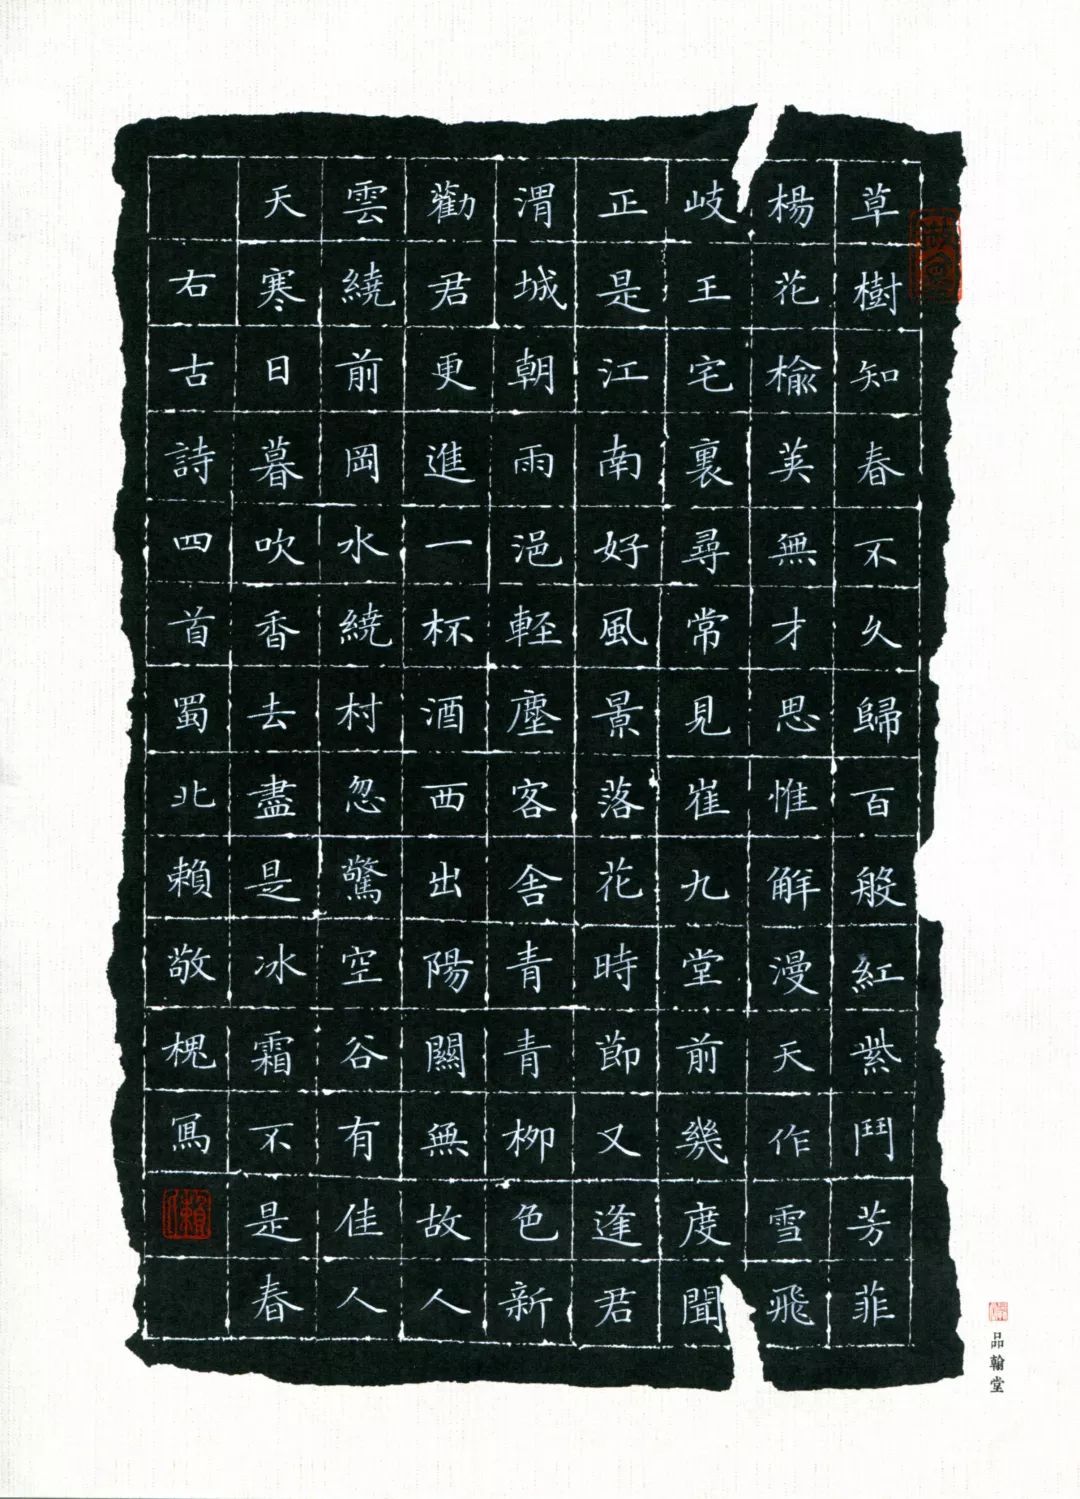 草樹知春不久歸百般紅紫鬥芳菲
楊花榆莢無才思惟解漫天作雪飛
岐王宅裏尋常見崔九堂前幾度聞
正是江南好風景落花時節又逢君
渭城朝雨浥輕塵客舍青青柳色新
勸君更進一杯酒西出陽關無故人
雲繞前岡水繞村忽驚空谷有佳人
天寒日暮吹香去盡是冰霜不是春
右古詩四首蜀北賴敬槐寫
賴
品翰堂